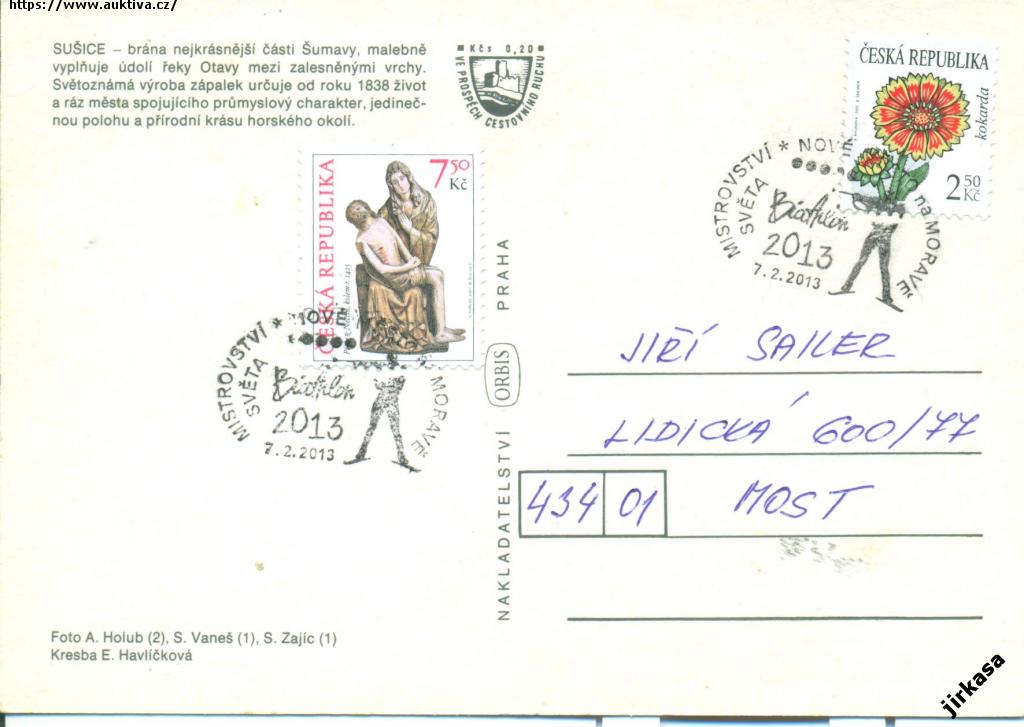 https://www.auktiva.cz/
SUŠICE – brána nejkrásnější části Šumavy, malebně
vyplňuje údolí řeky Otavy mezi zalesněnými vrchy.
Světoznámá výroba zápalek určuje od roku 1838 život
a ráz města spojujícího průmyslový charakter, jedineč-
nou polohu a přírodní krásu horského okolí.
Kčs 0,20
VE PROSPĚCH CESTOVNÍHO RUCHU
ČESKÁ REPUBLIKA
kokarda
2 50 Kč
MISTROVSTVÍ SVĚTA * NOVÉ
na MORAVĚ
Biathlon
2013
7.2.2013
ČESKÁ REPUBLIKA
7 50 Kč
MISTROVSTVÍ SVĚTA * NOVÉ
MORAVĚ
Biathlon
2013
7.2.2013
NAKLADATELSTVÍ ORBIS PRAHA
JIŘÍ SAILER
LIDICKÁ 600/77
434 01 MOST
Foto A. Holub (2), S. Vaneš (1), S. Zajíc (1)
Kresba E. Havlíčková
jirkasa